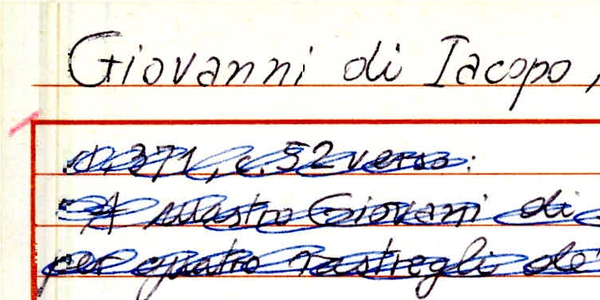 Giovanni di Iacopo,
n. 371, c. 52 verso:
A mastro Giovani di
per quatro rastregli de'